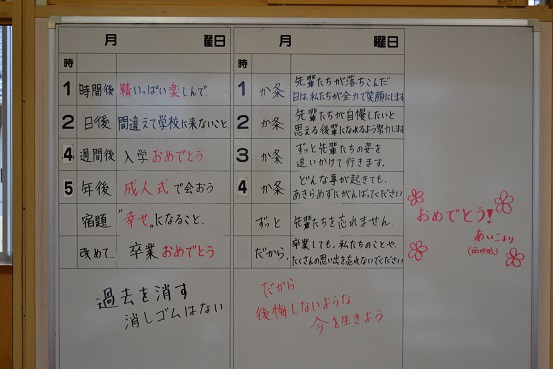 月 曜日
1 時間後 精いっぱい楽しんで
2 日後 間違えて学校に来ないこと.
4 週間後 入学おめでとう
5 年後 成人式で会おう.
宿題 "幸せ"になること.
改めて.. 卒業おめでとう
過去を消す
消しゴムはない
月 曜日
1 か条 先輩たちが落ちこんだ
日は、私たちが全力で笑顔にします
2 か条 先輩たちが自慢したいと
思える後輩になれるよう努力します
3 か条 ずっと先輩たちの姿を
追いかけて行きます。
4 か条 どんな事が起きても、
あきらめずにがんばってください
ずっと 先輩たちを忘れません.
だから. 卒業しても、私たちのことや、
たくさんの思い出を忘れないでください
だから.
後悔しないような
今を生きよう
おめでとう!
あいこより